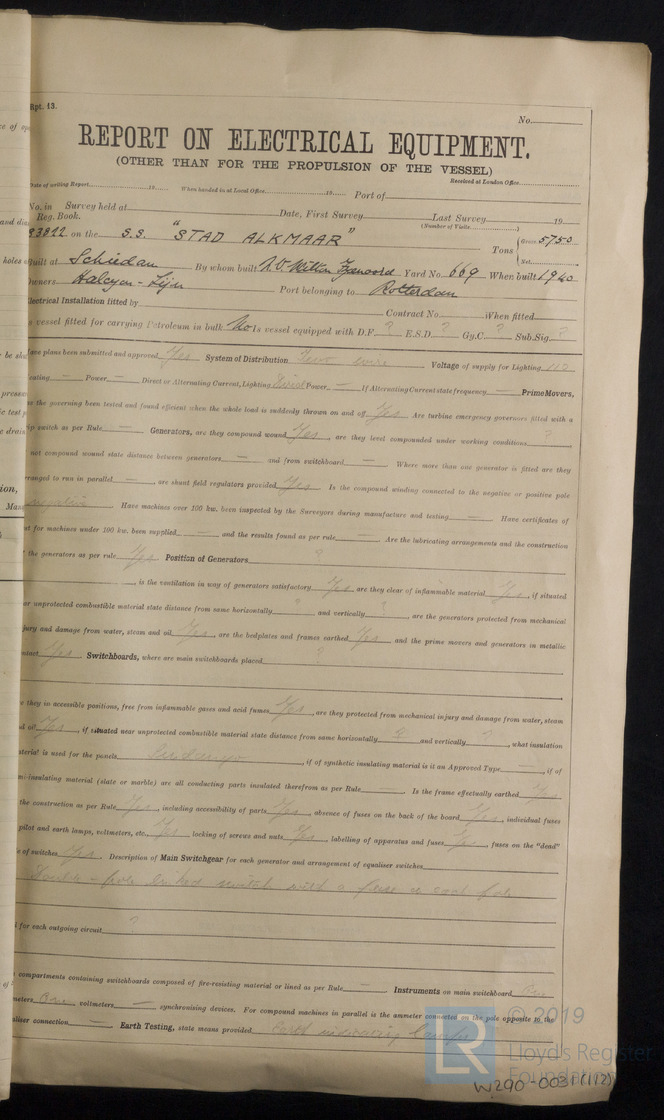 Rpt. 13.
No.
REPORT ON ELECTRICAL EQUIPMENT.
(OTHER THAN FOR THE PROPULSION OF THE VESSEL)
Date of writing Report 19 When handed in at Local Office 19 Port of Received at London Office
No. in Survey held at Date, First Survey Last Survey 19
Reg. Book. (Number of Visits )
93822 on the S.S. "STAD ALKMAAR" Tons { Gross 5750
Net
Built at Schiedam By whom built N.V. Wilton Fijenoord Yard No. 669 When built 1940
Owners Halcyon-Lijn Port belonging to Rotterdam
Electrical Installation fitted by Contract No. When fitted
Is vessel fitted for carrying Petroleum in bulk No Is vessel equipped with D.F. ? E.S.D. ? Gy.C. ? Sub.Sig. ?
Have plans been submitted and approved Yes System of Distribution Two wire Voltage of supply for Lighting 110
Heating — Power — Direct or Alternating Current, Lighting Direct Power — If Alternating Current state frequency — Prime Movers,
has the governing been tested and found efficient when the whole load is suddenly thrown on and off Yes Are turbine emergency governors fitted with a
trip switch as per Rule — Generators, are they compound wound Yes, are they level compounded under working conditions ?
not compound wound state distance between generators — and from switchboard — Where more than one generator is fitted are they
arranged to run in parallel —, are shunt field regulators provided Yes Is the compound winding connected to the negative or positive pole
negative Have machines over 100 kw. been inspected by the Surveyors during manufacture and testing — Have certificates of
test for machines under 100 kw. been supplied — and the results found as per rule — Are the lubricating arrangements and the construction
of the generators as per rule Yes Position of Generators ?
, is the ventilation in way of generators satisfactory Yes are they clear of inflammable material Yes, if situated
near unprotected combustible material state distance from same horizontally ? and vertically ?, are the generators protected from mechanical
injury and damage from water, steam and oil Yes, are the bedplates and frames earthed Yes and the prime movers and generators in metallic
contact Yes Switchboards, where are main switchboards placed ?
are they in accessible positions, free from inflammable gases and acid fumes Yes, are they protected from mechanical injury and damage from water, steam
and oil Yes, if situated near unprotected combustible material state distance from same horizontally ? and vertically ?, what insulation
material is used for the panels , if of synthetic insulating material is it an Approved Type —, if of
semi-insulating material (slate or marble) are all conducting parts insulated therefrom as per Rule — Is the frame effectually earthed Yes
Is the construction as per Rule Yes, including accessibility of parts Yes, absence of fuses on the back of the board Yes, individual fuses
to pilot and earth lamps, voltmeters, etc. Yes locking of screws and nuts Yes, labelling of apparatus and fuses Yes, fuses on the "dead"
side of switches Yes. Description of Main Switchgear for each generator and arrangement of equaliser switches
Double-pole linked switch with a fuse in each pole
for each outgoing circuit ?
compartments containing switchboards composed of fire-resisting material or lined as per Rule — Instruments on main switchboard One
ammeters One voltmeters — synchronising devices. For compound machines in parallel is the ammeter connected on the pole opposite to the
equaliser connection — Earth Testing, state means provided Earth indicating lamps
© 2019
LR
Lloyd's Register
Foundation
W290-0031(1/2)